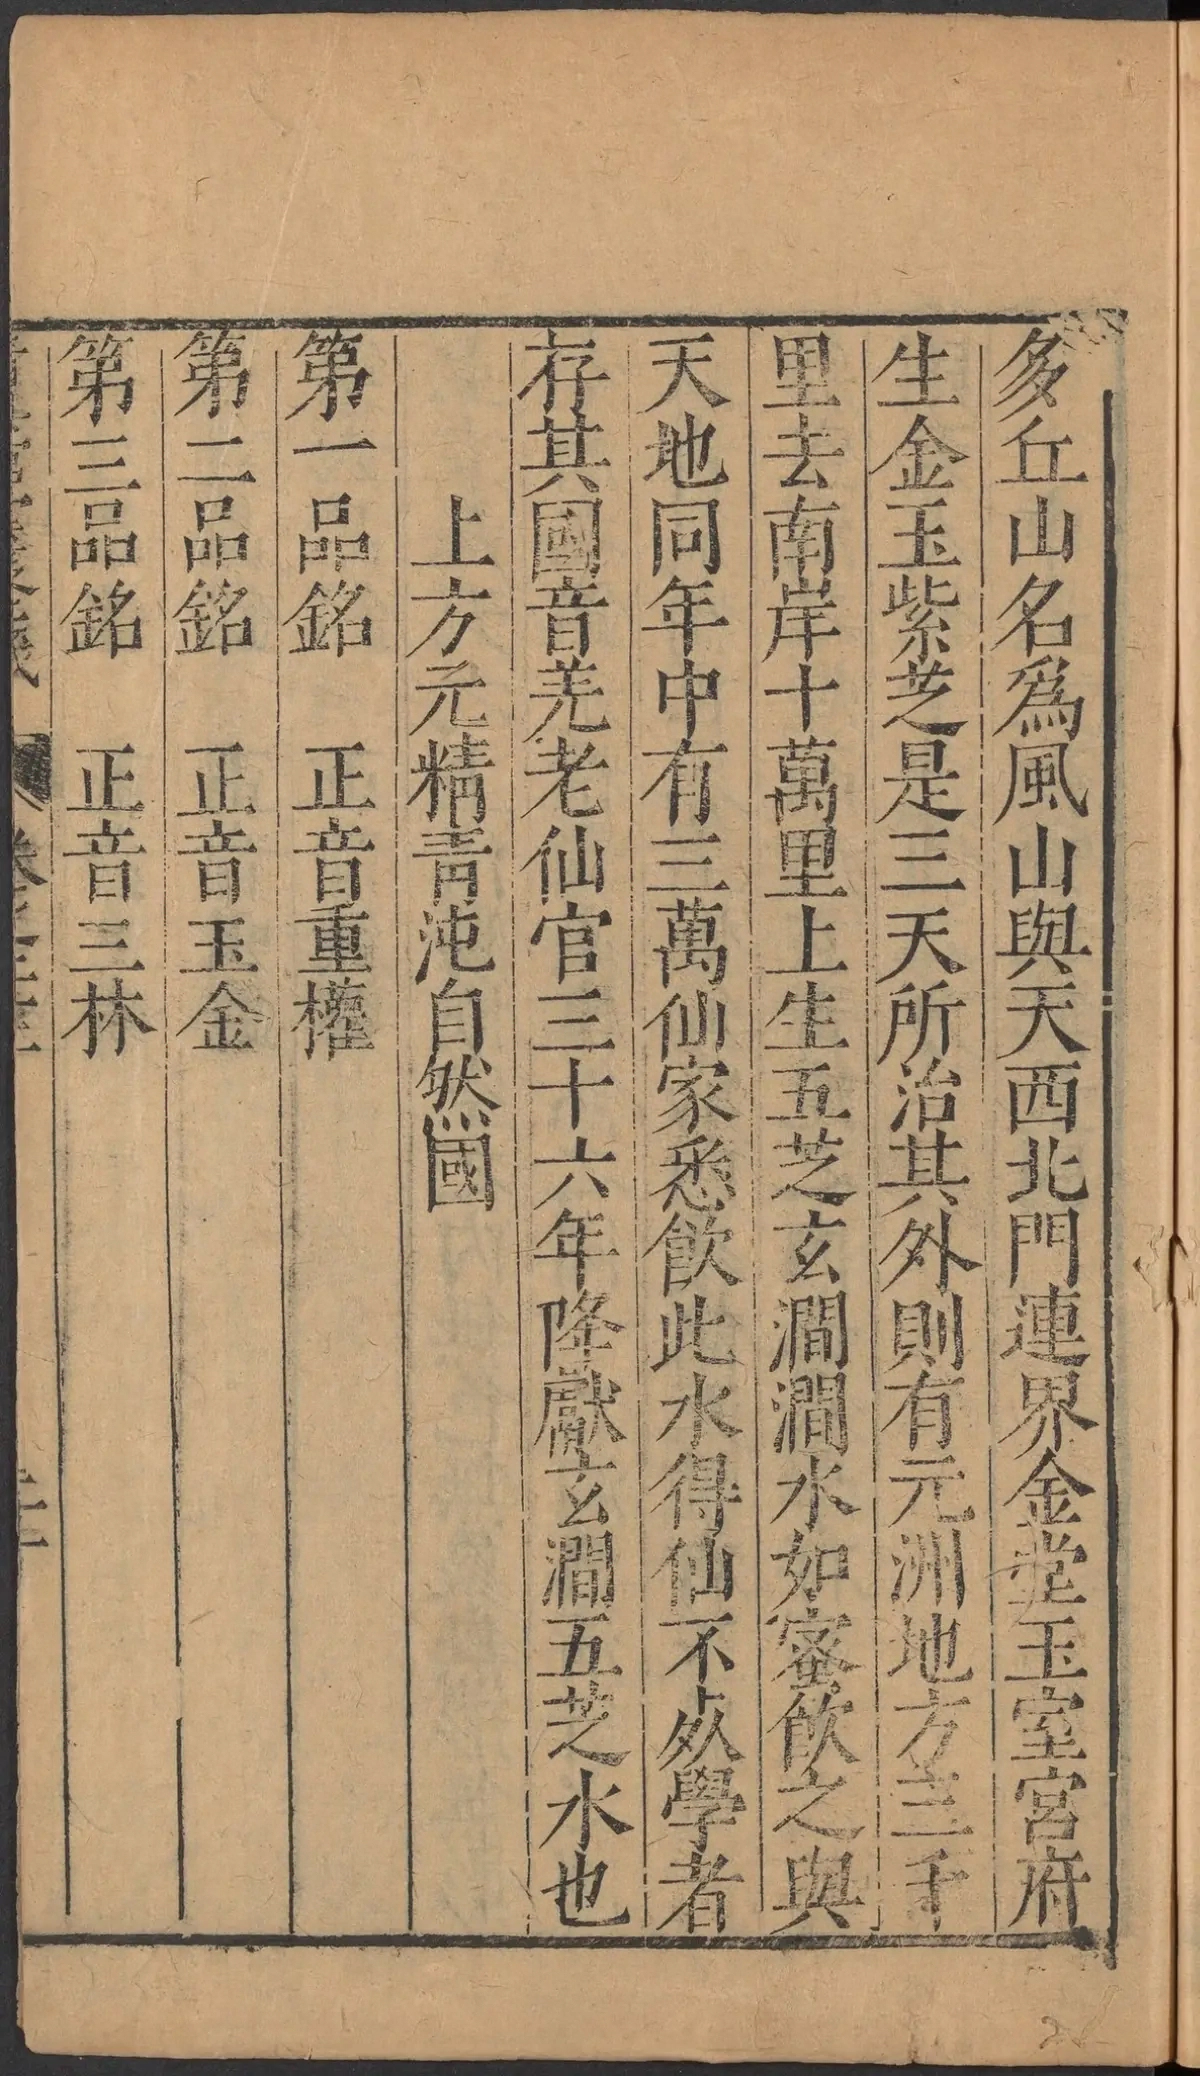 多丘山名爲風山與天西北門連界金堂玉室宮府
生金玉紫芝是三天所治其外則有元洲地方三千
里去南岸十萬里上生五芝玄澗澗水如蜜飮之與
天地同年中有三萬仙家悉飮此水得仙不㱾學者
存其國音羌老仙官三十六年降獻玄澗五芝水也
上方元精靑沌自然國
第一品銘　正音重權
第二品銘　正音玉金
第三品銘　正音三林